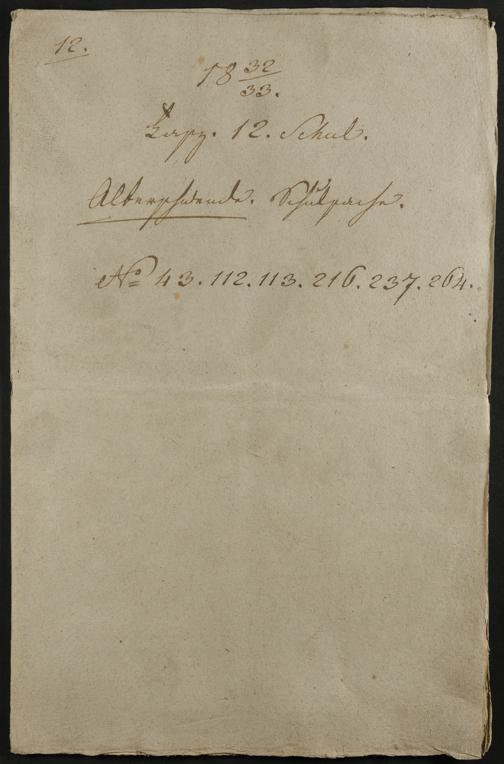 12.
18 32/33.
Fasz. 12. Schul.
Alberschwende. Schulsache.
No 43. 112. 113. 216. 237. 264.